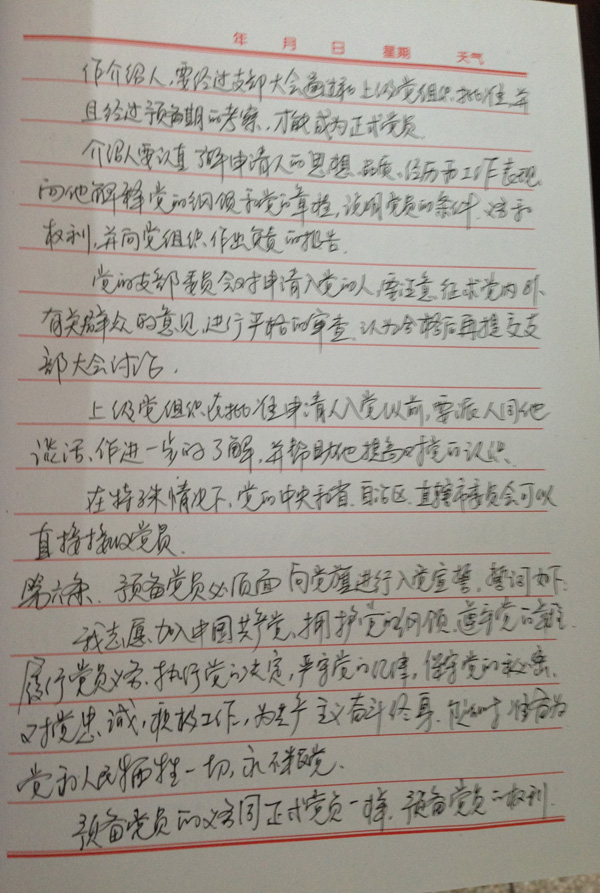 年 月 日 星期 天气
作介绍人,要经过支部大会通过和上级党组织批准,并
且经过预备期的考察,才能成为正式党员.
介绍人要认真了解申请人的思想、品质、经历和工作表现,
向他解释党的纲领和党的章程,说明党员的条件、义务和
权利,并向党组织作出负责的报告.
党的支部委员会对申请入党的人,要注意征求党内外
有关群众的意见,进行严格的审查,认为合格后再提交支
部大会讨论.
上级党组织在批准申请人入党以前,要派人同他
谈话,作进一步的了解,并帮助他提高对党的认识.
在特殊情况下,党的中央和省、自治区、直辖市委员会可以
直接接收党员.
第六条. 预备党员必须面向党旗进行入党宣誓,誓词如下:
我志愿加入中国共产党,拥护党的纲领,遵守党的章程,
履行党员义务,执行党的决定,严守党的纪律,保守党的秘密,
对党忠诚,积极工作,为共产主义奋斗终身,随时准备为
党和人民牺牲一切,永不叛党.
预备党员的义务同正式党员一样.预备党员的权利,